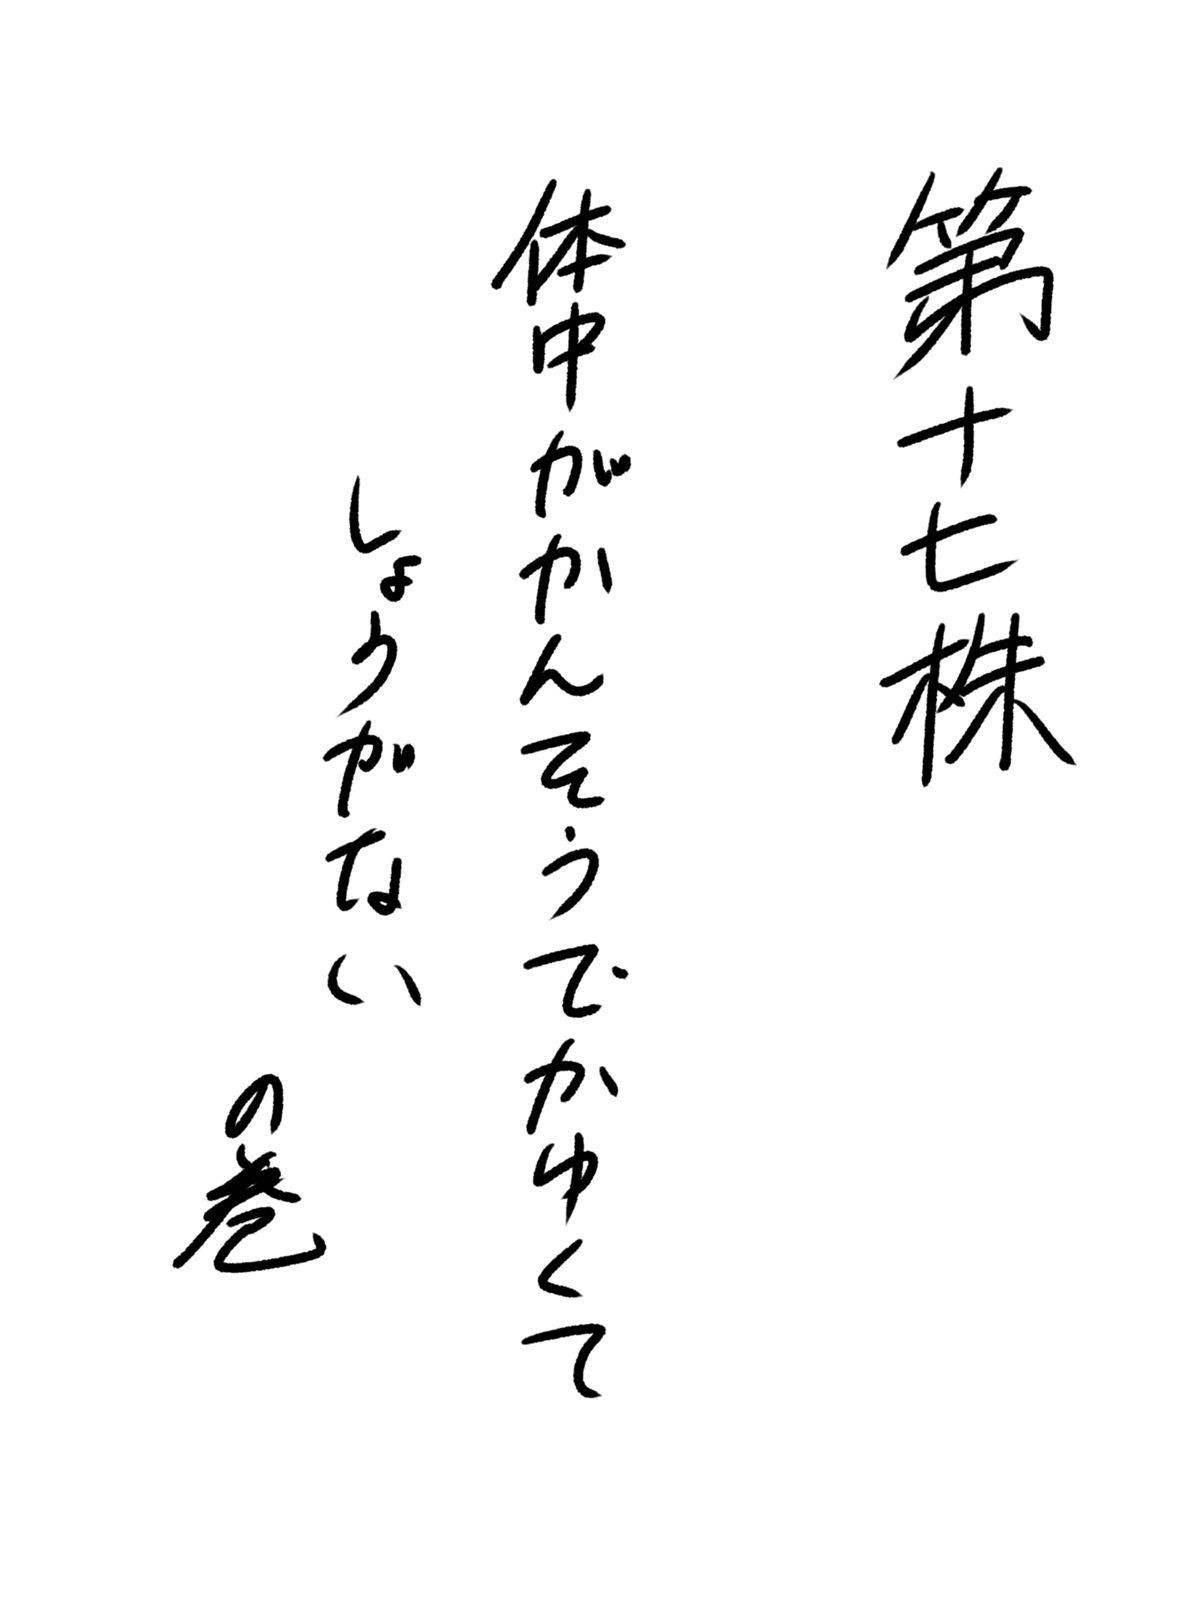 第十七株
体中がかんそうでかゆくて
しょうがない
の巻